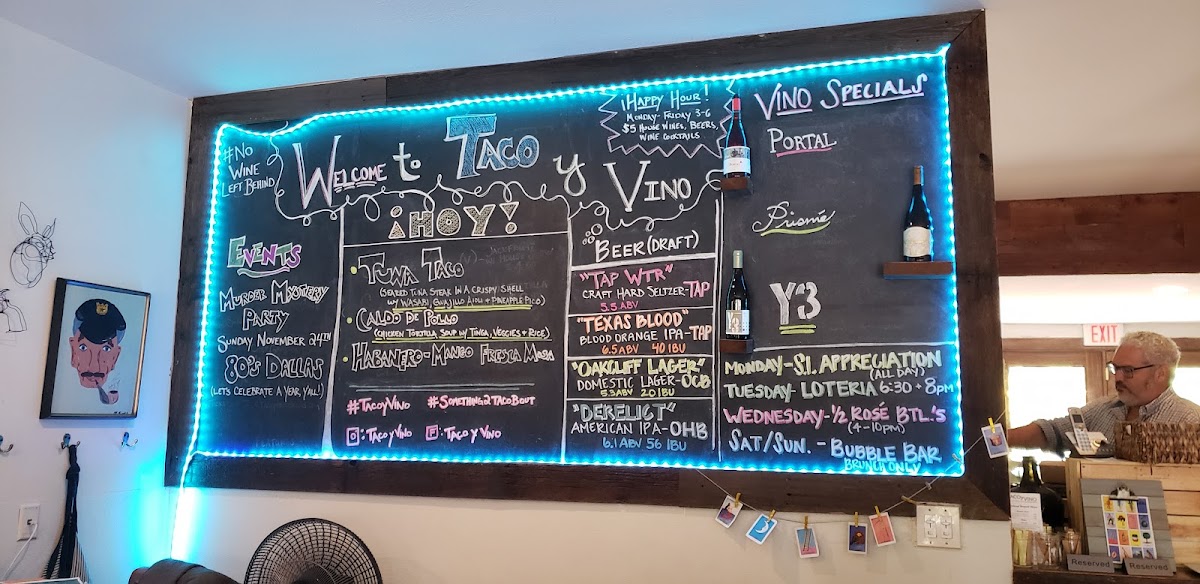 #No
Wine
Left Behind
Welcome to Taco y Vino
¡Happy Hour!
Monday-Friday 3-6
$5 House Wines, Beers,
Wine Cocktails
Events
Murder Mystery
Party
Sunday November 24th
80's Dallas
(Lets Celebrate a Year, Y'all!)
¡HOY!
• Tuna Taco
(Seared Tuna Steak in a Crispy Shell
w/ Wasabi, Guajillo Aioli + Pineapple Pico)
• Caldo de Pollo
(Chicken Tortilla Soup w/ Tinga, Veggies + Rice)
• Habanero-Mango Fresca Mosa
#TacoyVino #Something2TacoBout
: Taco y Vino
F: Taco y Vino
Beer (Draft)
"Tap Wtr"
Craft Hard Seltzer-TAP
5.5 ABV
"Texas Blood"
Blood Orange IPA-TAP
6.5 ABV 40 IBU
"Oakcliff Lager"
Domestic Lager-OCB
5.3 ABV 20 IBU
"Derelict"
American IPA-OHB
6.1 ABV 56 IBU
Vino Specials
Portal
Prismé
Y3
Monday-S.I. Appreciation
(All Day)
Tuesday-Loteria 6:30 + 8pm
Wednesday-1/2 Rosé Btl.'s
(4-10pm)
Sat/Sun. - Bubble Bar
Brunch Only
EXIT
Reserved
Reserved